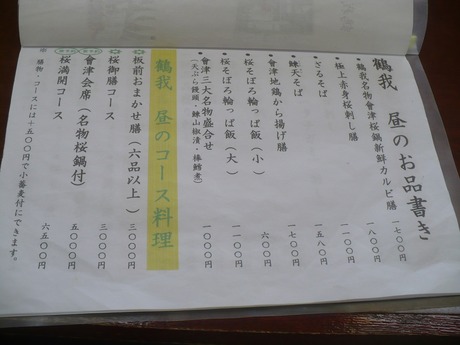 鶴我 昼のお品書き
・鶴我名物會津桜鍋新鮮カルビ膳 一七〇〇円
・極上赤身桜刺し膳 一八〇〇円
・ざるそば 一一〇〇円
・鰊天そば 一五八〇円
・會津地鶏から揚げ膳 一七〇〇円
・桜そぼろ輪っぱ飯(小) 六〇〇円
・桜そぼろ輪っぱ飯(大) 一一〇〇円
・會津三大名物盛合せ 一〇〇〇円
(天ぷら饅頭・鰊山椒漬・棒鱈煮)
鶴我 昼のコース料理
板前おまかせ膳(六品以上) 三〇〇〇円
桜御膳コース 三〇〇〇円
會津会席(名物桜鍋付) 五〇〇〇円
桜満開コース 六五〇〇円
膳物・コースには+五〇〇円で小蕎麦付にできます。